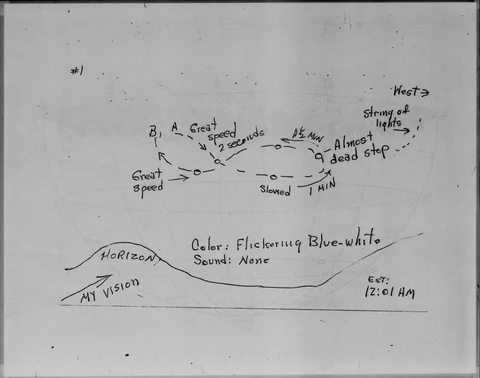 #1
West →
String of
lights
B, A Great
speed
2 seconds
1½ MIN
Almost
dead stop
Great
speed
Slowed
1 MIN
Color: Flickering Blue-white
Sound: None
HORIZON
MY VISION
EST:
12:01 AM